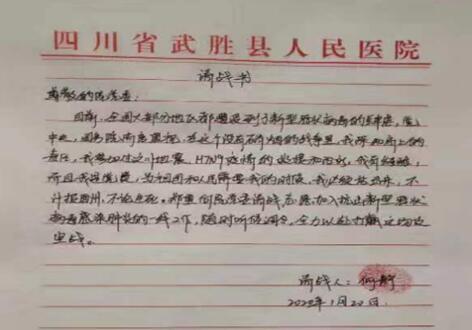 四川省武胜县人民医院
请战书
尊敬的院党委：
目前，全国大部分地区都遭受到了新型冠状病毒的肆虐，党
中央，国务院高度重视，在这个没有硝烟的战争里，我深知肩上的
责任，我参加过汶川地震、H7N9疫情的救援和防治，我有经验，
而且我是党员，为祖国和人民需要我的时候，我必须站出来，不
计报酬，不论生死。郑重向院党委请战，志愿加入抗击新型冠状
病毒感染肺炎的一线工作，随时听候调令，全力以赴打赢这场攻
坚战。
请战人：何
2020年1月22日